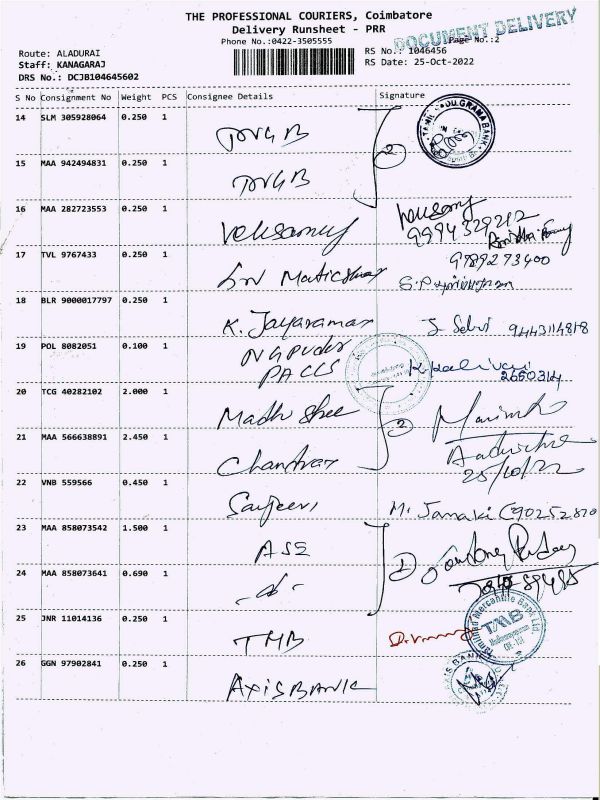 THE PROFESSIONAL COURIERS, Coimbatore
Delivery Runsheet - PRR
DOCUMENT DELIVERY
Phone No.:0422-3505555
Page No.:2
Route: ALADURAI
Staff: KANAGARAJ
DRS No.: DCJB104645602
RS No.: 1046456
RS Date: 25-Oct-2022
S No Consignment No Weight PCS Consignee Details Signature
14 SLM 305928064 0.250 1 TNGB 2
15 MAA 942494831 0.250 1 TNGB
16 MAA 282723553 0.250 1 Velusamy Velusamy
9994329212
17 TVL 9767433 0.250 1 Sri
9789273400
18 BLR 9000017797 0.250 1 K. Jayaraman J. Selvi 9443114818
19 POL 8082051 0.100 1 PACCS
2650314
20 TCG 40282102 2.000 1 Madhu Shree 2
21 MAA 566638891 2.450 1 Chandran
25/10/22
22 VNB 559566 0.450 1 Sanjeevi M. Janaki
23 MAA 858073542 1.500 1 ASE
24 MAA 858073641 0.690 1 -do-
25 JNR 11014136 0.250 1 TMB
Tamilnad Mercantile Bank Ltd.
TMB
26 GGN 97902841 0.250 1 AXIS BANK